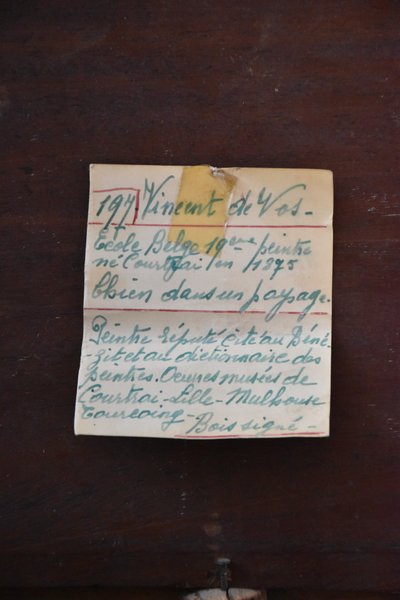 197 Vincent de Vos-
École Belge 19ème peintre
né Courtrai en 1875
Chien dans un paysage.
Peintre réputé cité au Béné-
zit et au dictionnaire des
peintres. Oeuvres musées de
Courtrai-Lille-Mulhouse
Tourcoing- Bois signé-